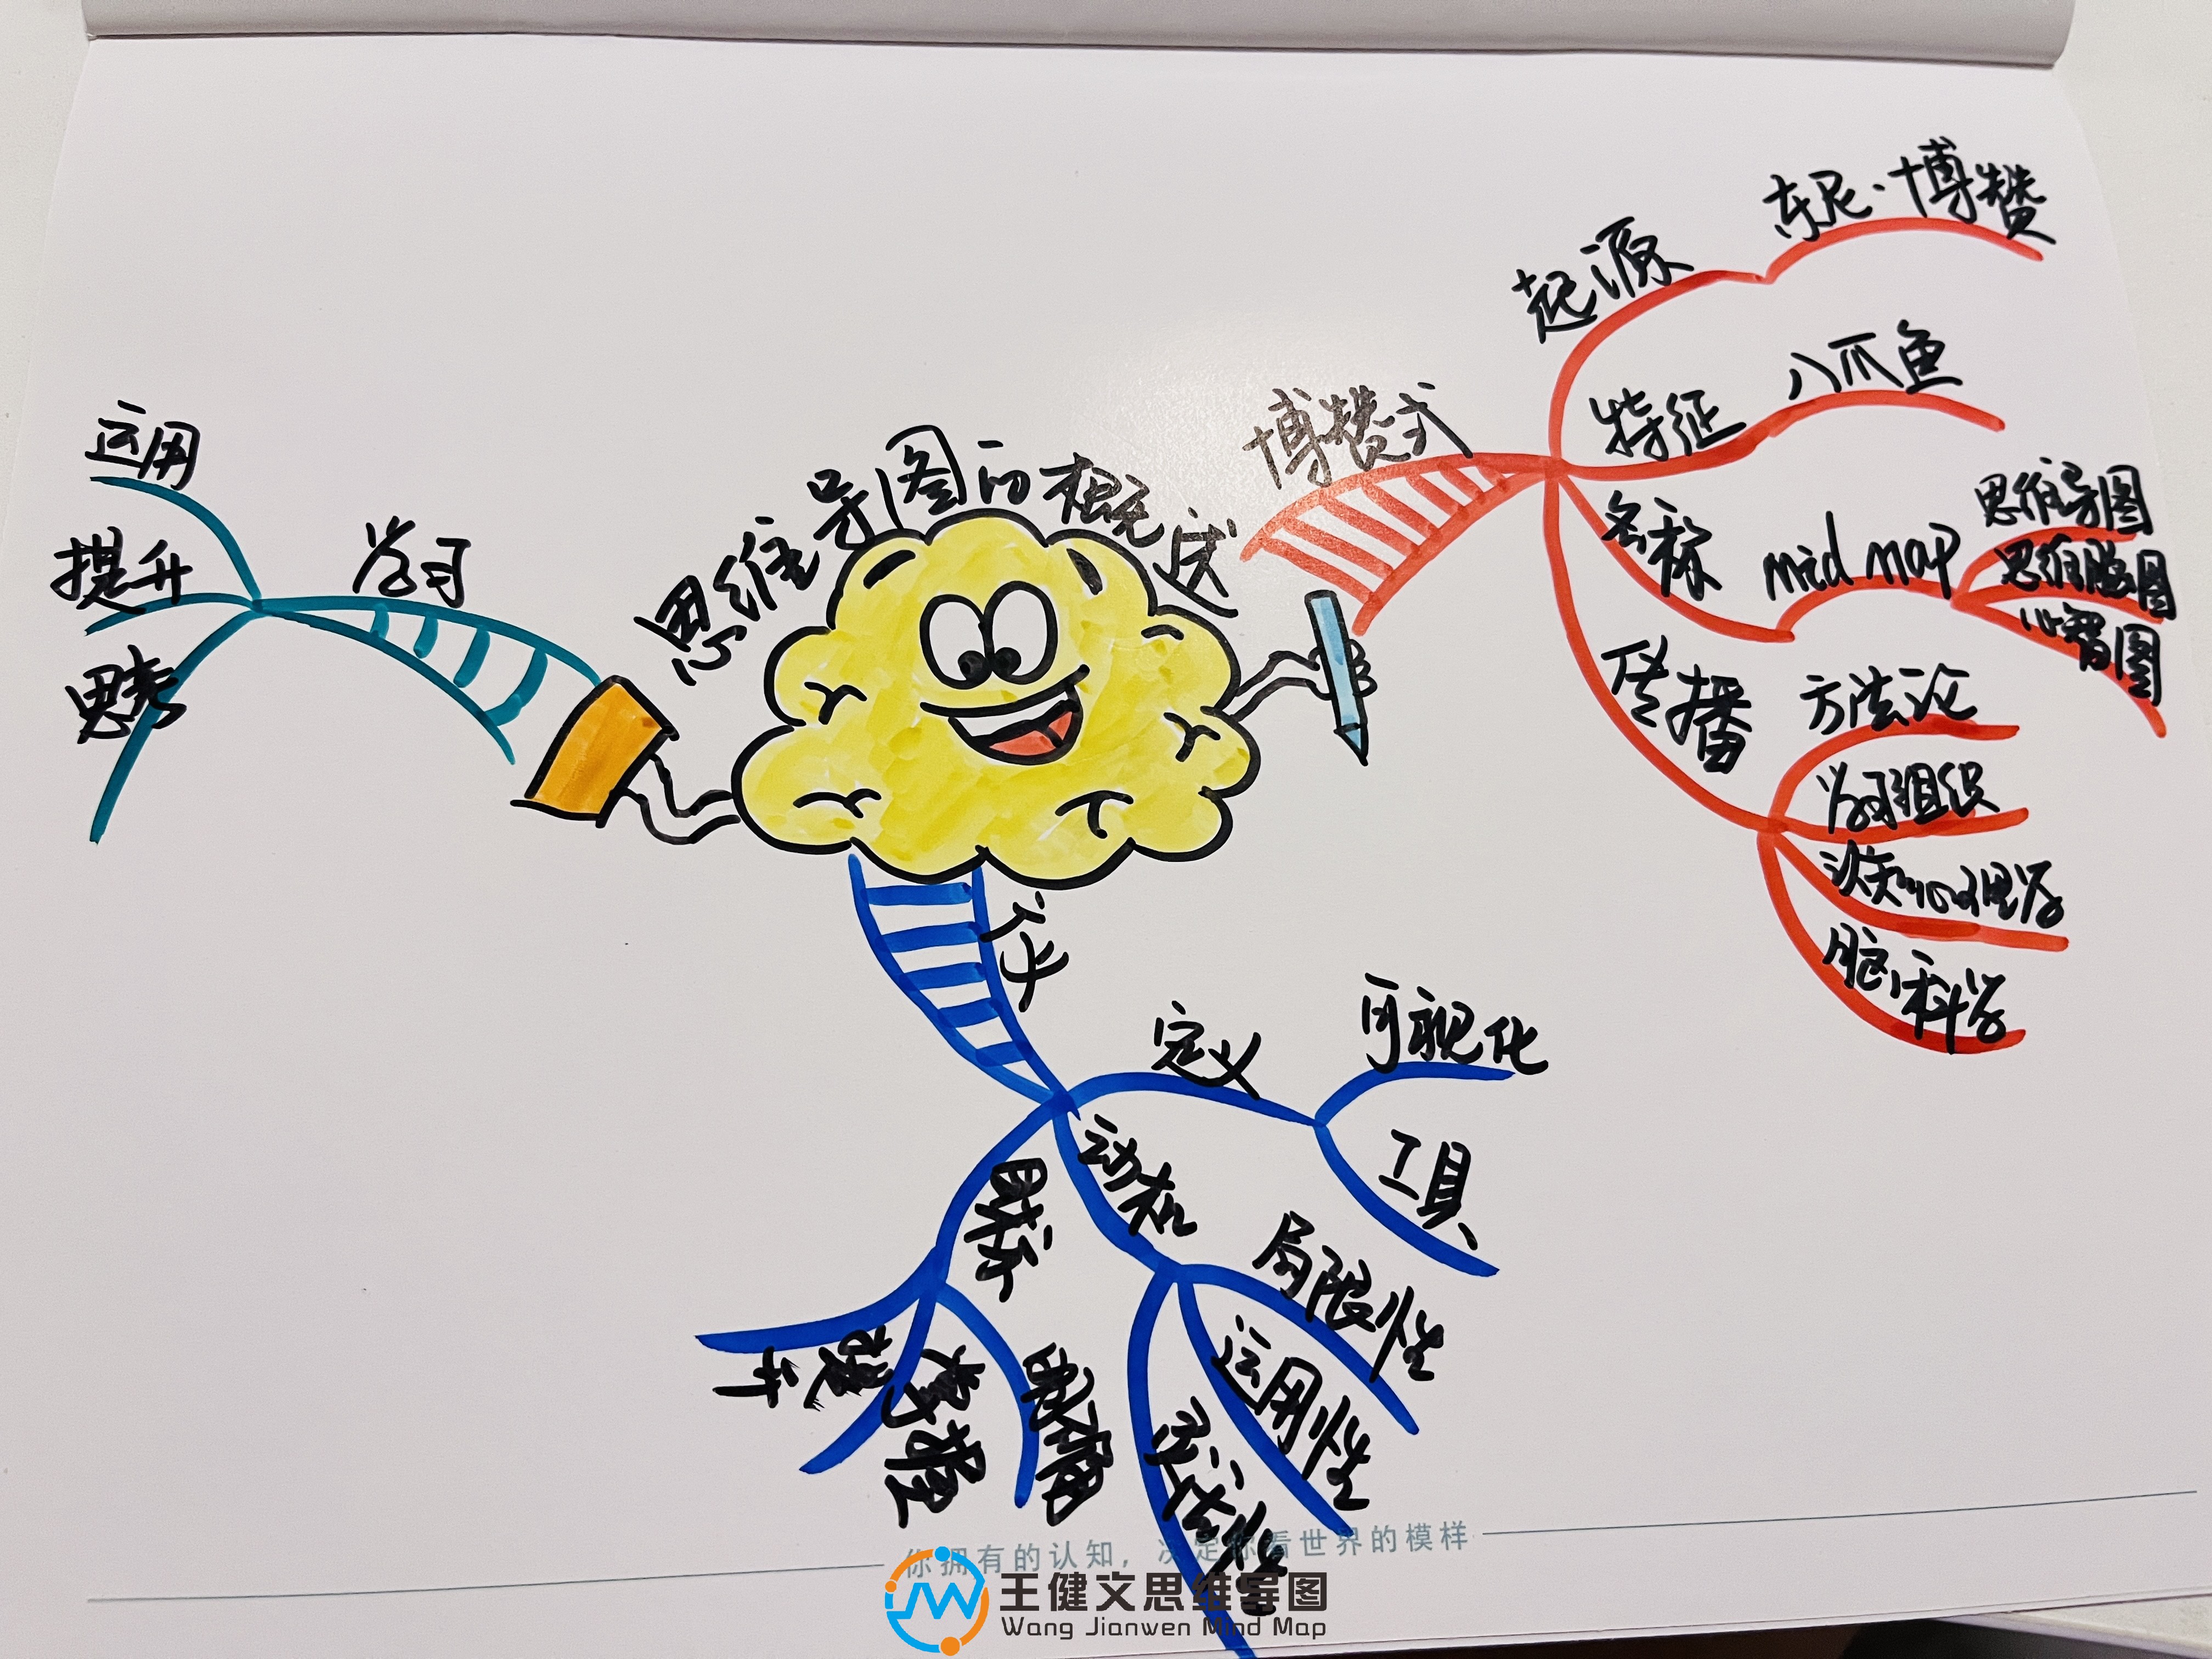 思维导图的概述
博赞式
起源
东尼·博赞
特征
八爪鱼
名称
mid map
思维导图
思维脑图
心智图
传播
方法论
学习组织
认知心理学
脑科学
定义
可视化
工具
动机
局限性
运用性
目标
明确
掌握
提升
学习
运用
提升
思考
你拥有的认知，决定你看世界的模样
王健文思维导图
Wang Jianwen Mind Map